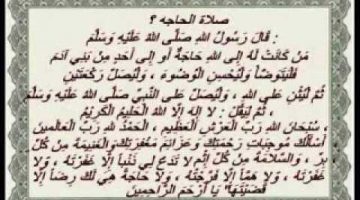 صلاة الحاجه ؟
: قَالَ رَسُولُ اللهِ صَلَّى اللهُ عَلَيْهِ وَسَلَّمَ
مَنْ كَانَتْ لَهُ إِلَى اللهِ حَاجَةٌ أَوْ إِلَى أَحَدٍ مِنْ بَنِي آدَمَ
فَلْيَتَوَضَّأْ وَلْيُحْسِنِ الْوُضُوءَ ، وَلْيُصَلِّ رَكْعَتَيْنِ
ثُمَّ لْيُثْنِ عَلَى اللهِ ، وَلْيُصَلِّ عَلَى النَّبِيِّ صَلَّى اللهُ عَلَيْهِ وَسَلَّمَ
، ثُمَّ لْيَقُلْ : لا إِلَهَ إِلا اللهُ الْحَلِيمُ الْكَرِيمُ
، سُبْحَانَ اللهِ رَبِّ الْعَرْشِ الْعَظِيمِ ، الْحَمْدُ للهِ رَبِّ الْعَالَمِينَ
أَسْأَلُكَ مُوجِبَاتِ رَحْمَتِكَ وَعَزَائِمَ مَغْفِرَتِكَ وَالْغَنِيمَةَ مِنْ كُلِّ
بِرٍّ ، وَالسَّلامَةَ مِنْ كُلِّ إِثْمٍ لا تَدَعْ لِي ذَنْبًا إِلا غَفَرْتَهُ ، وَلا
غَفَرْتَهُ ، وَلا هَمًّا إِلا فَرَّجْتَهُ ، وَلا حَاجَةً هِيَ لَكَ رِضًا إِلا
قَضَيْتَهَا" يَا أَرْحَمَ الرَّاحِمِينَ